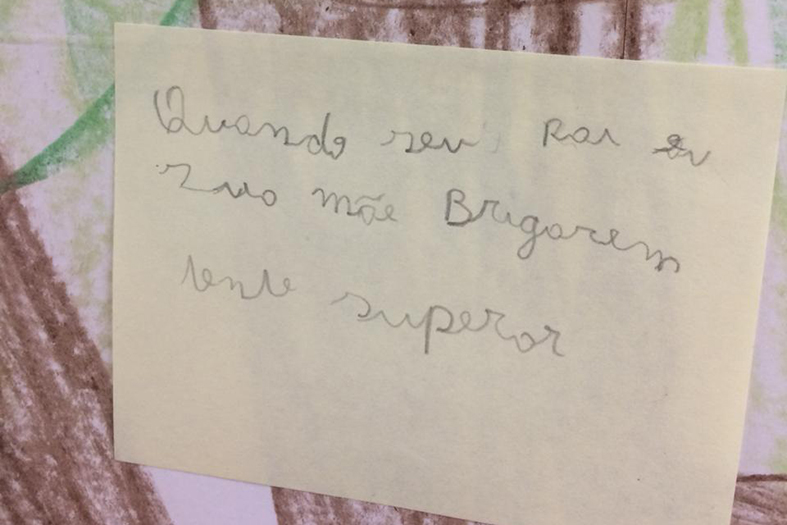 Quando seu pai ou
sua mãe Brigarem
tente superar